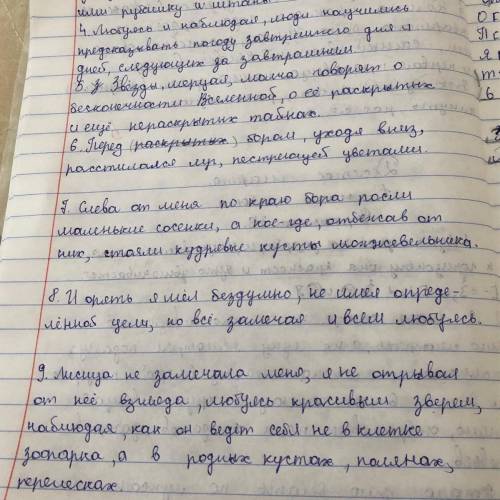 или рубашку и штаны
4. Любуясь и наблюдая, люди научились
предсказывать погоду завтрашнего дня и
дней, следующих за завтрашним.
5. Звёзды, мерцая, молча говорят о
бесконечности Вселенной, о её раскрытых
и ещё нераскрытых тайнах.
6. Перед (раскрытых) бором, уходя вниз,
расстилался луг, пестреющей цветами.
7. Слева от меня по краю бора росли
маленькие сосенки, а кое-где, отбежав от
них, стояли кудревые кусты можжевельника.
8. И опять я шёл бездумно, не имея опреде-
лённой цели, но всё замечая и всем любуясь.
9. Лисица не замечала меня, я не отрывал
от неё взгляда, любуясь красивым зверем,
наблюдая, как он ведёт себя не в клетке
зоопарка, а в родных кустах, полянах,
перелесках.